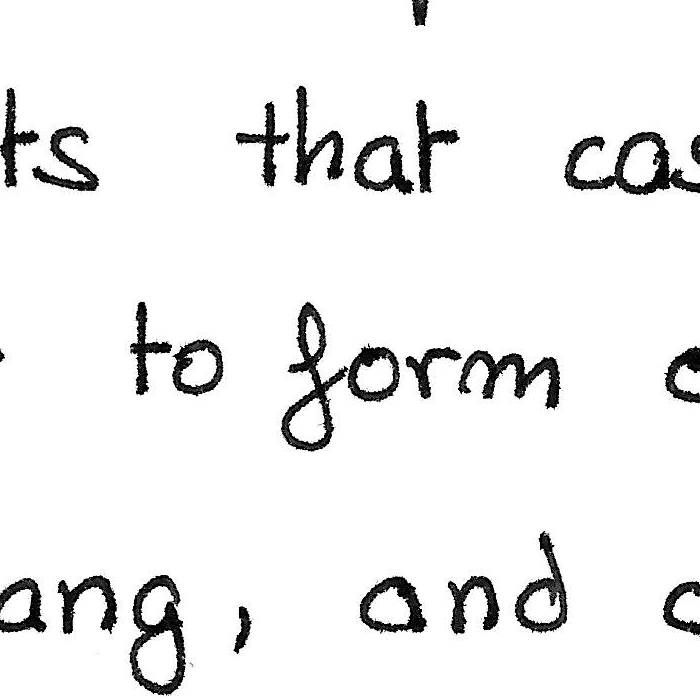 ts that cas
to form
ang, and